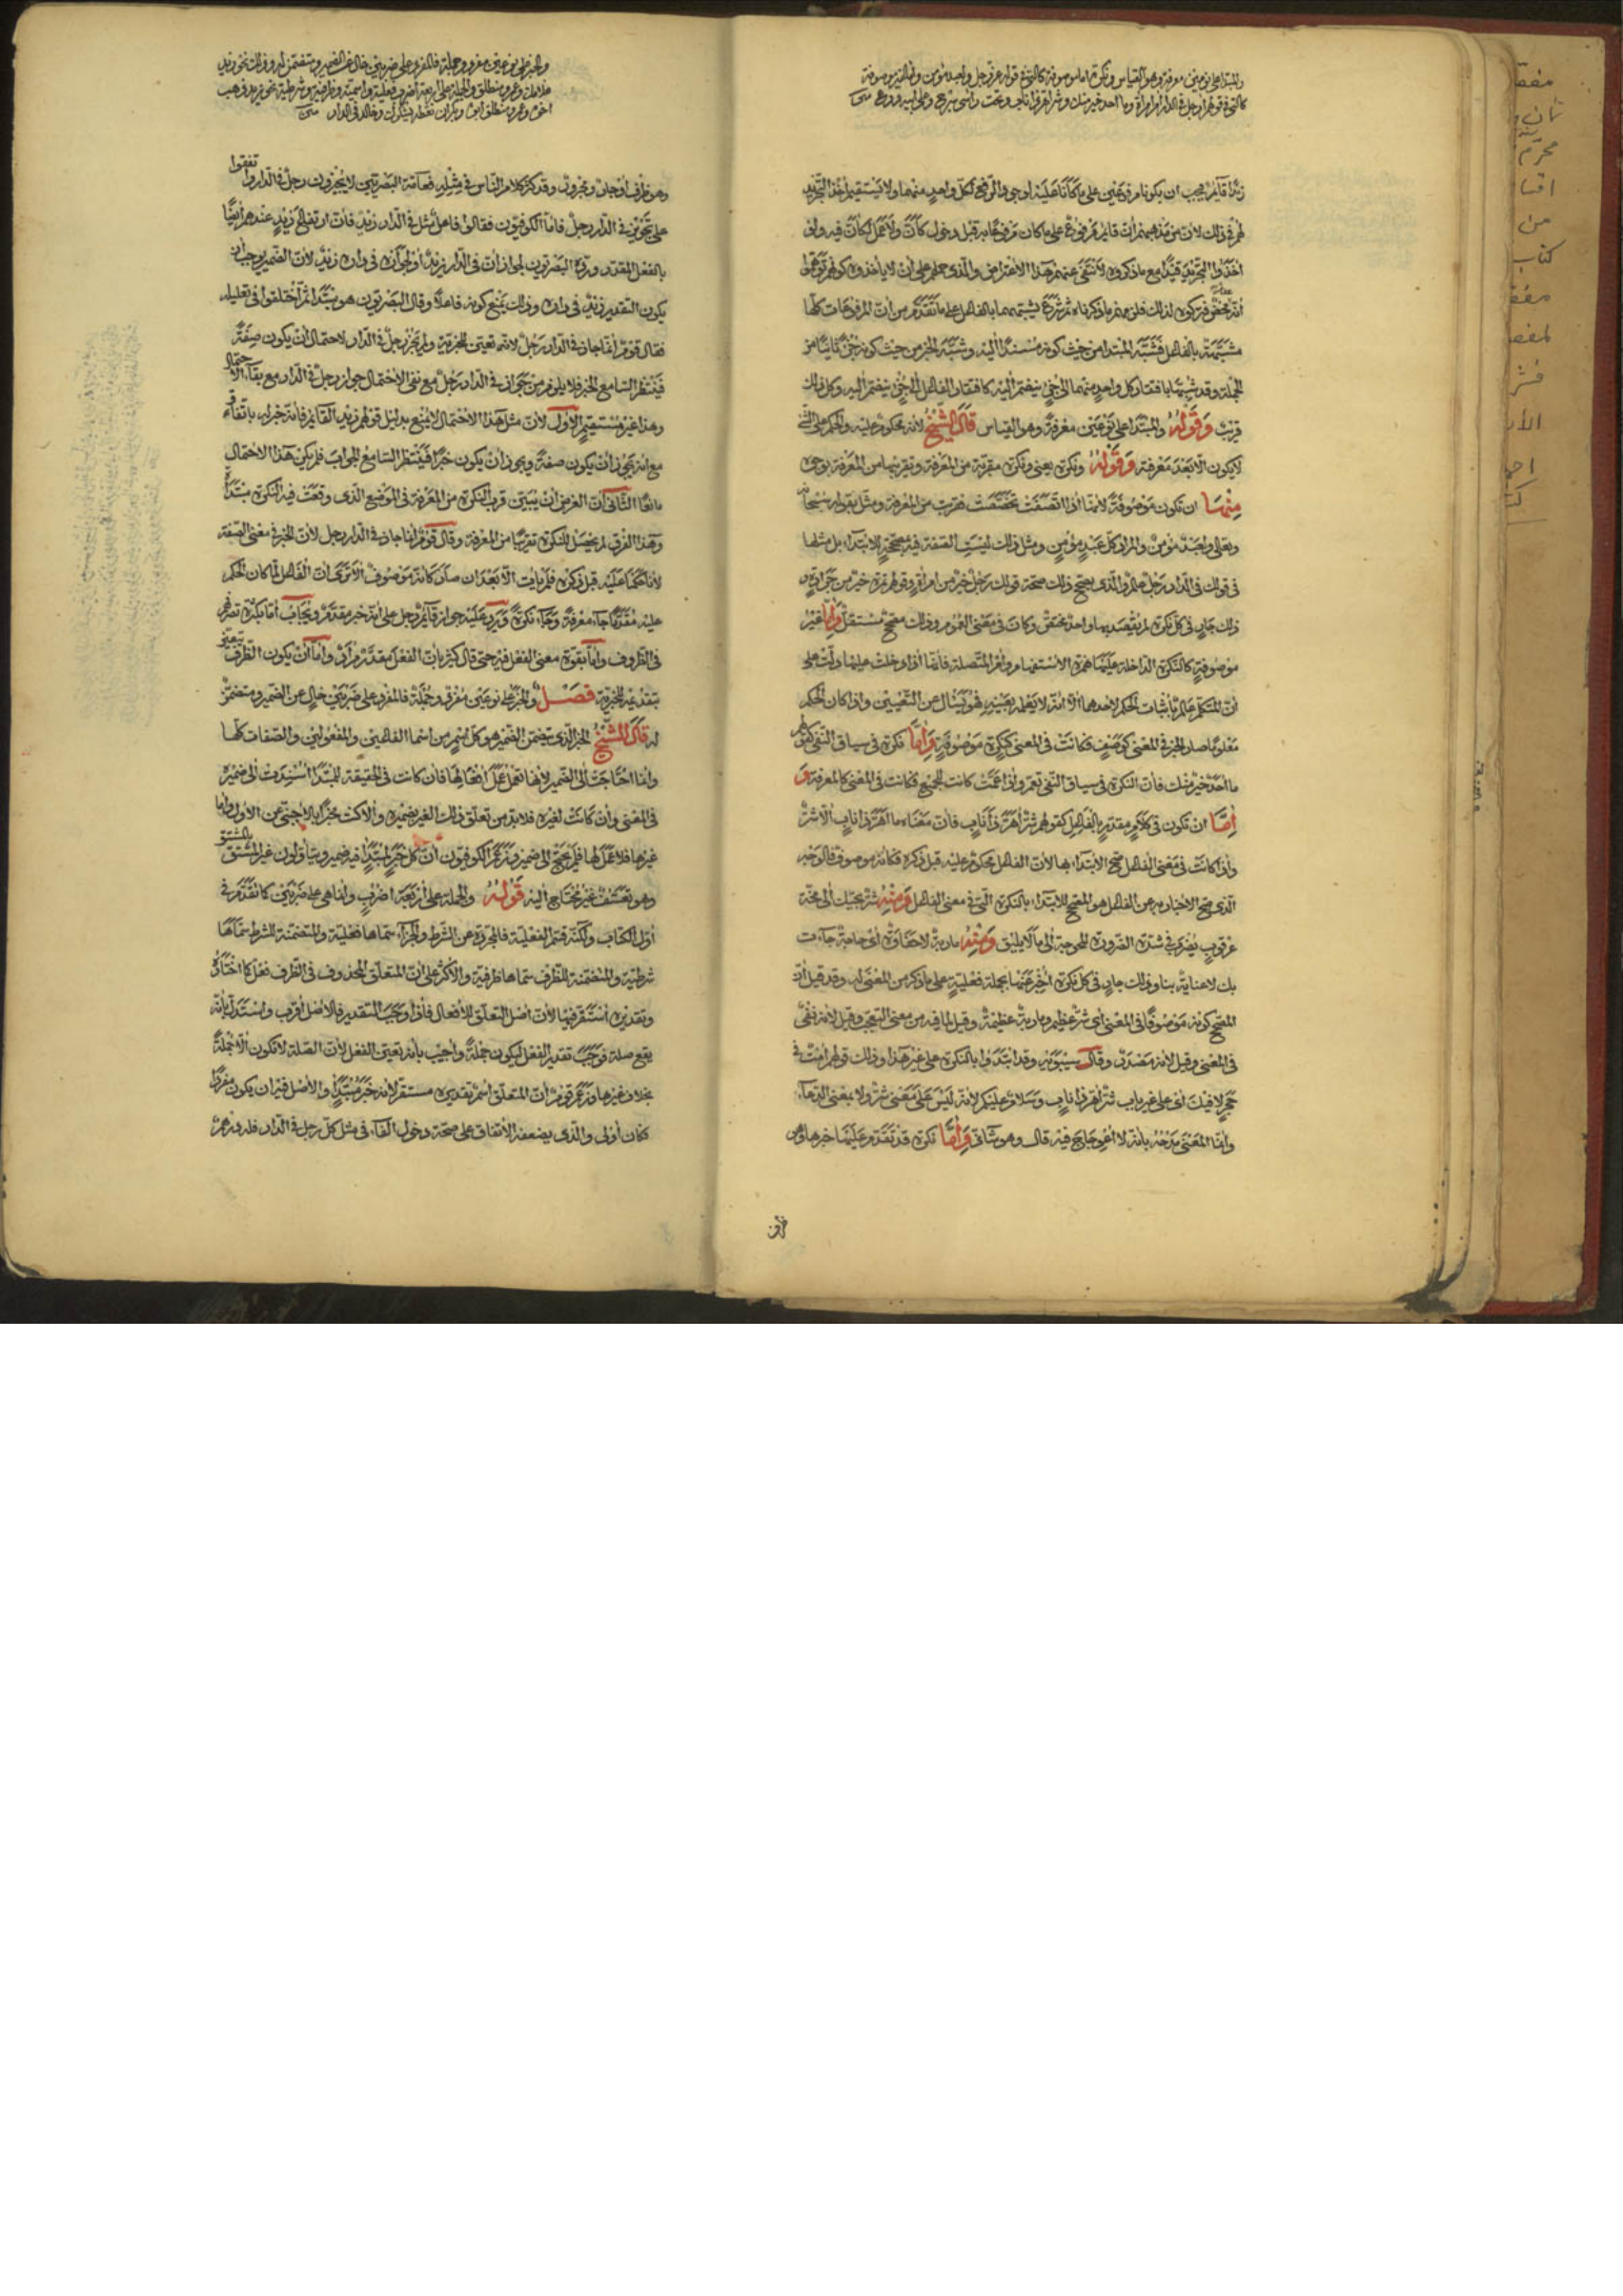 والمبتدا على نوعين معرفة وهو القياس ونكرة اما موصوفة كالتي في قوله عز وجل ولعبد مؤمن واما غير موصوفة
كالتي في قولهم ارجل في الدار ام امراة وما احد خير منك وشر اهر ذا ناب وتحت راسي سرج وعلى ابيه درع
زيدا قايم فيجب ان يكونا مرفوعين على ما كانا عليه اوجوه الرفع لكل واحد منهما ولا يستقيم اخذ التجريد
لهم في ذلك لان من مذهبهم ان قايم مرفوع على ما كان مرفوعا به قبل دخول كان ولا عمل لكان فيه ولو
اخذوا التجريد قيدا مع ما ذكروه لانتفى عنهم هذا الاعتراض والذي حملهم على ان لا ياخذوه كونهم توهموا
مشبهة بالفاعل فشبه المبتدا من حيث كونه مسندا اليه وشبه الخبر من حيث كونه جزءا ثانيا من
الجملة وقد شبها بافتقار كل واحد منهما الى جزء ينضم اليه كافتقار الفاعل الى جزء ينضم اليه وكل ذلك
قريب وقوله والمبتدا على نوعين معرفة وهو القياس قال الشيخ لانه محكوم عليه والحكم على الشيء
لا يكون الا بعد معرفته وقوله ونكرة يعني ونكرة مقربة من المعرفة وتقريبها من المعرفة بوجوه
منها ان تكون موصوفة لانها اذا اتصفت تخصصت فقربت من المعرفة ومثل بقوله سبحانه
وتعالى ولعبد مؤمن والمراد كل عبد مؤمن ومثل ذلك ليست الصفة فيه مصححة للابتداء بل مثلها
في قولك في الدار رجل عالم والذي يصحح ذلك صحة قولك رجل خير من امراة وقولهم تمرة خير من جرادة و
ذلك جار في كل نكرة لم يقصد بها واحد مختص وكان في معنى العموم وذلك مصحح مستقل واما غير
موصوفة كالنكرة الداخلة عليها همزة الاستفهام وام المتصلة فانها اذا دخلت عليها دلت على
ان المتكلم عالم باثبات الحكم لاحدهما الا انه لا يعلمه بعينه فهو يسال عن التعيين واذا كان الحكم
معلوما صار الخبر في المعنى كوصف فكانت في المعنى كنكرة موصوفة واما نكرة في سياق النفي كقولهم
ما احد خير منك فان النكرة في سياق النفي تعم واذا عمت كانت للجميع فكانت في المعنى كالمعرفة و
اما ان تكون في كلام مقدر بالفاعل كقولهم شر اهر ذا ناب فان معناه ما اهر ذا ناب الا شر
واذا كانت في معنى الفاعل صح الابتداء بها لان الفاعل محكوم عليه قبل ذكره فكانه موصوف فالوجه
الذي صح الاخبار به عن الفاعل هو المصحح للابتداء بالنكرة التي في معنى الفاعل ومنه شر يجيئك الى مخة
عرقوب يضرب في شدة الضرورة المحوجة الى ما لا يليق ومنه ماربة لا حفاوة اي حاجة جاءت
بك لا عناية بنا وذلك جار في كل نكرة اخبر عنها بجملة فعلية على ما ذكر من المعنى له وقد قيل ان
المصحح كونه موصوفا في المعنى اي شر عظيم وماربة عظيمة وقيل لما فيه من معنى التعجب وقيل لانه نفي
في المعنى وقيل لانه مصدر وقال سيبويه وقد ابتدءوا بالنكرة على غير هذا وذلك قولهم امت في
حجر لا فيك اي على غير باب شر اهر ذا ناب وسلام عليكم لانه ليس على معنى شر ولا بمعنى الدعاء
وانما المعنى مدحه بانه لا اعوجاج فيه قال وهو شاذ واما نكرة قد تقدم عليها خبرها وهو
ظرف
والخبر على نوعين مفرد وجملة فالمفرد على ضربين خال عن الضمير ومتضمن له وذلك نحو زيد
غلامك وعمرو منطلق والجملة على اربعة اضرب فعلية واسمية وظرفية وشرطية نحو زيد ذهب
اخوه وعمرو منطلق ابوه وبكر ان تعطه يشكرك وخالد في الدار
وهو ظرف او جار ومجرور وقد كثر كلام الناس في مثله فعامة البصريين لا يجيزون رجل في الدار واتفقوا
على تجويز في الدار رجل فاما الكوفيون فقالوا فاعل مثل في الدار زيد فان ارتفاع زيد عندهم ايضا
بالفعل المقدر ورده البصريون لجواز ان في الدار زيدا ولجواز في داره زيد لان الضمير يوجب ان
يكون التقدير زيد في داره وذلك يمنع كونه فاعلا وقال البصريون هو مبتدا ثم اختلفوا في تعليله
فقال قوم انما جاز في الدار رجل لانه تعين للخبرية ولم يجز رجل في الدار لاحتمال ان يكون صفة
فينتظر السامع الخبر فلا يلزم من جواز في الدار رجل مع نفي الاحتمال جواز رجل في الدار مع بقاء الاحتمال
وهذا غير مستقيم الاول لان مثل هذا الاحتمال لا يمنع بدليل قولهم زيد القايم فانه خبر له باتفاق
مع انه يجوز ان يكون صفة ويجوز ان يكون خبرا فينتظر السامع الجواب فلم يكن هذا الاحتمال
مانعا الثاني ان الغرض ان يبين قرب النكرة من المعرفة في الموضع الذي وقعت فيه النكرة مبتدا
وهذا الفرق لم يحصل للنكرة تقريبا من المعرفة وقال قوم انما جاز في الدار رجل لان الخبر في معنى الصفة
لانا حكمنا عليه قبل ذكره فلم يات الا بعد ان صار كانه موصوف الا ترى ان الفاعل لما كان الحكم
عليه مقدما جاء معرفة وجاء نكرة ويرد عليه جواز قايم رجل على انه خبر مقدم ويجاب اما بكثرة تصرفهم
في الظروف واما بقوة معنى الفعل فيه حتى قال كثير بان الفعل مقدر مراد واما ان يكون الظرف تعين
بتقديمه للخبرية فصل والخبر على نوعين مفرد وجملة فالمفرد على ضربين خال عن الضمير ومتضمن
له قال الشيخ الخبر الذي يتضمن الضمير هو كل اسم من اسماء الفاعلين والمفعولين والصفات كلها
وانما احتاجت الى الضمير لانها تعمل عمل افعالها فان كانت في الحقيقة للمبتدا اسندت الى ضميره
في المعنى وان كانت لغيره فلا بد من تعلق ذلك الغير بضميره والا كنت مخبرا بالاجنبي عن الاول واما
غيرها فلا عمل لها فلم يحتج الى ضمير وزعم الكوفيون ان كل خبر لمبتدا فيه ضمير ويتاولون غير المشتق بالمشتق
وهو تعسف غير محتاج اليه قوله والجملة على اربعة اضرب وانما هي على ضربين كما تقدم في
اول الكتاب ولكنه قسم الفعلية فالمجردة عن الشرط والجزاء سماها فعلية والمتضمنة للشرط سماها
شرطية والمتضمنة للظرف سماها ظرفية والاكثر على ان المتعلق المحذوف في الظرف فعل كما اختاره
وتقديره استقر فيها لان اصل التعلق للافعال فاذا وجب التقدير فالاصل اقرب واستدل بانه
يقع صلة فوجب تقدير الفعل ليكون جملة واجيب بانه تعين الفعل لان الصلة لا تكون الا جملة
بخلاف غيرها وزعم قوم ان المتعلق اسم تقديره مستقر لانه خبر مبتدا والاصل فيه ان يكون مفردا
فكان اولى والذي يضعفه الاتفاق على صحة دخول الفاء في مثل كل رجل في الدار فله درهم